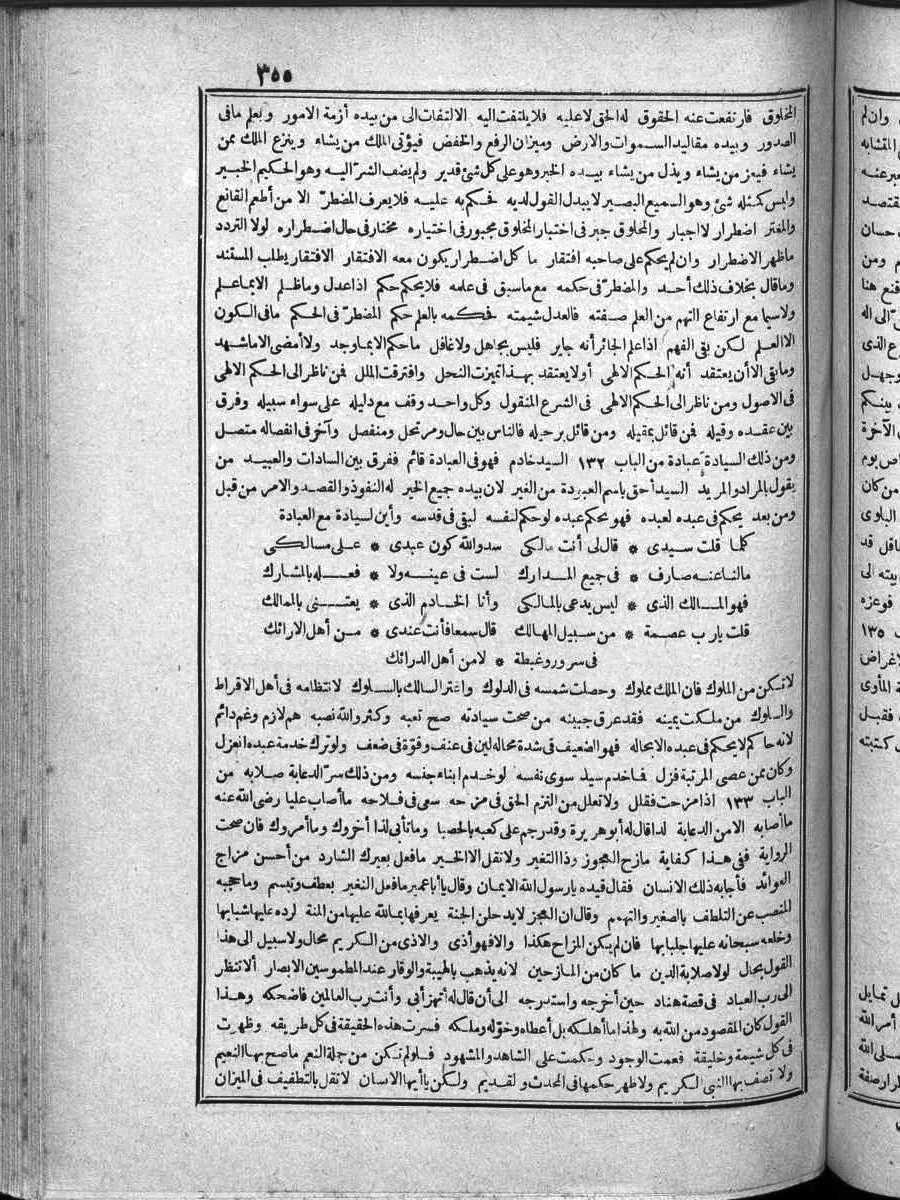 ٣٥٥
المخلوق فارتفعت عنه الحقوق له الحق لا عليه فلا يلتفت اليه الالتفات الى من بيده أزمة الامور ويعلم مافى
الصدور وبيده مقاليد السموات والارض وميزان الرفع والخفض فيؤتى الملك من يشاء وينزع الملك ممن
يشاء فيعز من يشاء ويذل من يشاء بيده الخير وهو على كل شئ قدير ولم يضف الشرّ اليه وهو الحكيم الخبير
وليس كمثله شئ وهو السميع البصير لا يبدل القول لديه فحكم به عليه فلا يعرف المضطرّ الا من أطعم القانع
والمعتر اضطرار لا اجبار والمخلوق جبر فى اختبار المخلوق مجبور فى اختياره مختار فى حال اضطراره لولا التردد
ماظهر الاضطرار وان لم يحكم على صاحبه افتقار ما كل اضطرار يكون معه الافتقار الافتقار يطلب المستند
وماقال بخلاف ذلك أحد والمضطرّ فى حكمه مع ماسبق فى علمه فلا يحكم حكم اذا عدل وما ظلم الابما علم
ولاسيما مع ارتفاع التهم من العلم صفته فالعدل شيمته فحكمه بالعلم حكم المضطرّ فى الحكم مافى الكون
الا العلم لكن بقى الفهم اذا علم الجائر أنه جاير فليس بجاهل ولا غافل ماحكم الابما وجد ولا أمضى الا ماشهد
ومابقى الا أن يعتقد أنه الحكم الالهى أولا يعتقد بهذا تميزت النحل وافترقت الملل فمن ناظر الى الحكم الالهى
فى الاصول ومن ناظر الى الحكم الالهى فى الشرع المنقول وكل واحد وقف مع دليله على سواء سبيله وفرق
بين عقده وقيله فمن قائل بمقيله ومن قائل برحيله فالناس بين حال ومرتحل ومنفصل وآخر فى انفصاله متصل
ومن ذلك السيادة عبادة من الباب ١٣٢ السيد خادم فهو فى العبادة قائم ففرق بين السادات والعبيد من
يقول بالمراد والمريد السيد أحق باسم العبودة من الغير لان بيده جميع الخير له النفوذ والقصد والامر من قبل
ومن بعد يحكم فى عبده لعبده فهو بحكم عبده لو حكم لنفسه لبقى فى قدسه وأين لسيادة مع العبادة
كلما قلت سيدى * قال لى أنت مالكى سد والله كون عبدى * على مسالكى
مالنا عنه صارف * فى جميع المدارك لست فى عينه ولا * فعله بالمشارك
فهو المالك الذى * ليس يدعى بالمالكى وأنا الخادم الذى * يعتنى بالممالك
قلت يارب عصمة * من سبيل المهالك قال سمعا فأنت عندى * من أهل الارائك
فى سرور وغبطة * لا من أهل الدرائك
لا تكن من الملوك فان الملك مملوك وحصلت شمسه فى الدلوك واغتر السالك بالسلوك لانتظامه فى أهل الاقراط
والسلوك من ملكت يمينه فقد عرق جبينه من صحت سيادته صح تعبه وكثر والله نصبه هم لازم وغم دائم
لانه حاكم لا يحكم فى عبده الابحاله فهو الضعيف فى شدة محاله لين فى عنف وقوّة فى ضعف ولو ترك خدمة عبده انعزل
وكان ممن عصى المرتبة فزل فاخدم سيد سوى نفسه لو خدم ابناء جنسه ومن ذلك سرّ الدعابة صلابه من
الباب ١٣٣ اذا مزحت فقلل ولا تعلل من التزم الحق فى مزحه سعى فى فلاحه ماأصاب عليا رضى الله عنه
ماأصابه الامن الدعابة لذا قال له أبو هريرة وقد رجم على كعبه بالحصبا وماتأبى لذا أخروك وماأمروك فان صحت
الرواية ففى هذا كفاية مازح العجوز وذا النغير ولاتقل الا الخير مافعل بعيرك الشارد من أحسن مزاج
العوائد فأجابه ذلك الانسان فقال قيده يارسول الله الايمان وقال ياأبا عمير مافعل النغير بعطف وتبسم وماحجبه
المنصب عن التلطف بالصغير والتهمم وقال ان العجز لايدخلن الجنة يعرفها بمالله عليها من المنة لرده عليها شبابها
وخلعه سبحانه عليها جلبابها فان لم يكن المزاح هكذا والا فهو أذى والاذى من الكريم محال ولا سبيل الى هذا
القول بحال لولا صلابة الدين ما كان من المازحين لانه يذهب بالهيبة والوقار عند المطموسين الابصار ألا تنظر
الى رب العباد فى قصة هناد حين أخرجه واستدرجه الى أن قال له أتهزأ بى وأنت رب العالمين فاضحكه وهذا
القول كان المقصود من الله به ولهذا ماأهلكه بل أعطاه وخوّله وملكه فسرت هذه الحقيقة فى كل طريقه وظهرت
فى كل شيمة وخليقة فعمت الوجود وحكمت على الشاهد والمشهود فلولم تكن من جملة النعم ماصح بها النعيم
ولا تصف بها النبى الكريم ولا ظهر حكمها فى المحدث والقديم ولكن ياأيها الانسان لاتقل بالتطفيف فى الميزان